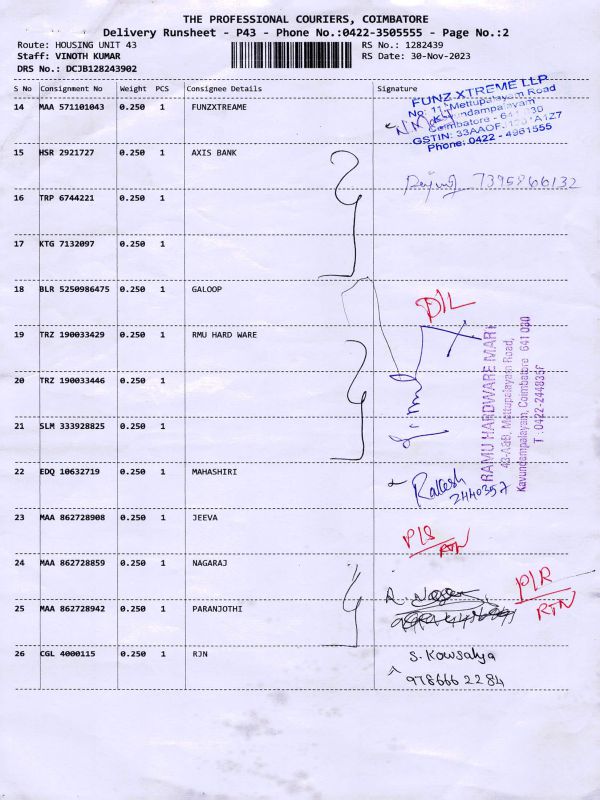 THE PROFESSIONAL COURIERS, COIMBATORE
Delivery Runsheet - P43 - Phone No.:0422-3505555 - Page No.:2
Route: HOUSING UNIT 43 RS No.: 1282439
Staff: VINOTH KUMAR RS Date: 30-Nov-2023
DRS No.: DCJB128243902
S No Consignment No Weight PCS Consignee Details Signature
14 MAA 571101043 0.250 1 FUNZXTREAME
FUNZ XTREME LLP
No: 11, Mettupalayam Road
Coimbatore - 641 030
Phone: 0422 - 4961555
15 HSR 2921727 0.250 1 AXIS BANK
7395866132
16 TRP 6744221 0.250 1
17 KTG 7132097 0.250 1
18 BLR 5250986475 0.250 1 GALOOP
D/L
19 TRZ 190033429 0.250 1 RMU HARD WARE
RAMU HARDWARE MART
Mettupalayam Road,
Kavundampalayam, Coimbatore 641 030
20 TRZ 190033446 0.250 1
21 SLM 333928825 0.250 1
22 EDQ 10632719 0.250 1 MAHASHIRI
Rakesh
2440357
23 MAA 862728908 0.250 1 JEEVA
P/S
RTN
24 MAA 862728859 0.250 1 NAGARAJ
P/R
RTN
25 MAA 862728942 0.250 1 PARANJOTHI
26 CGL 4000115 0.250 1 RJN
S. Kowsalya
978666 2284